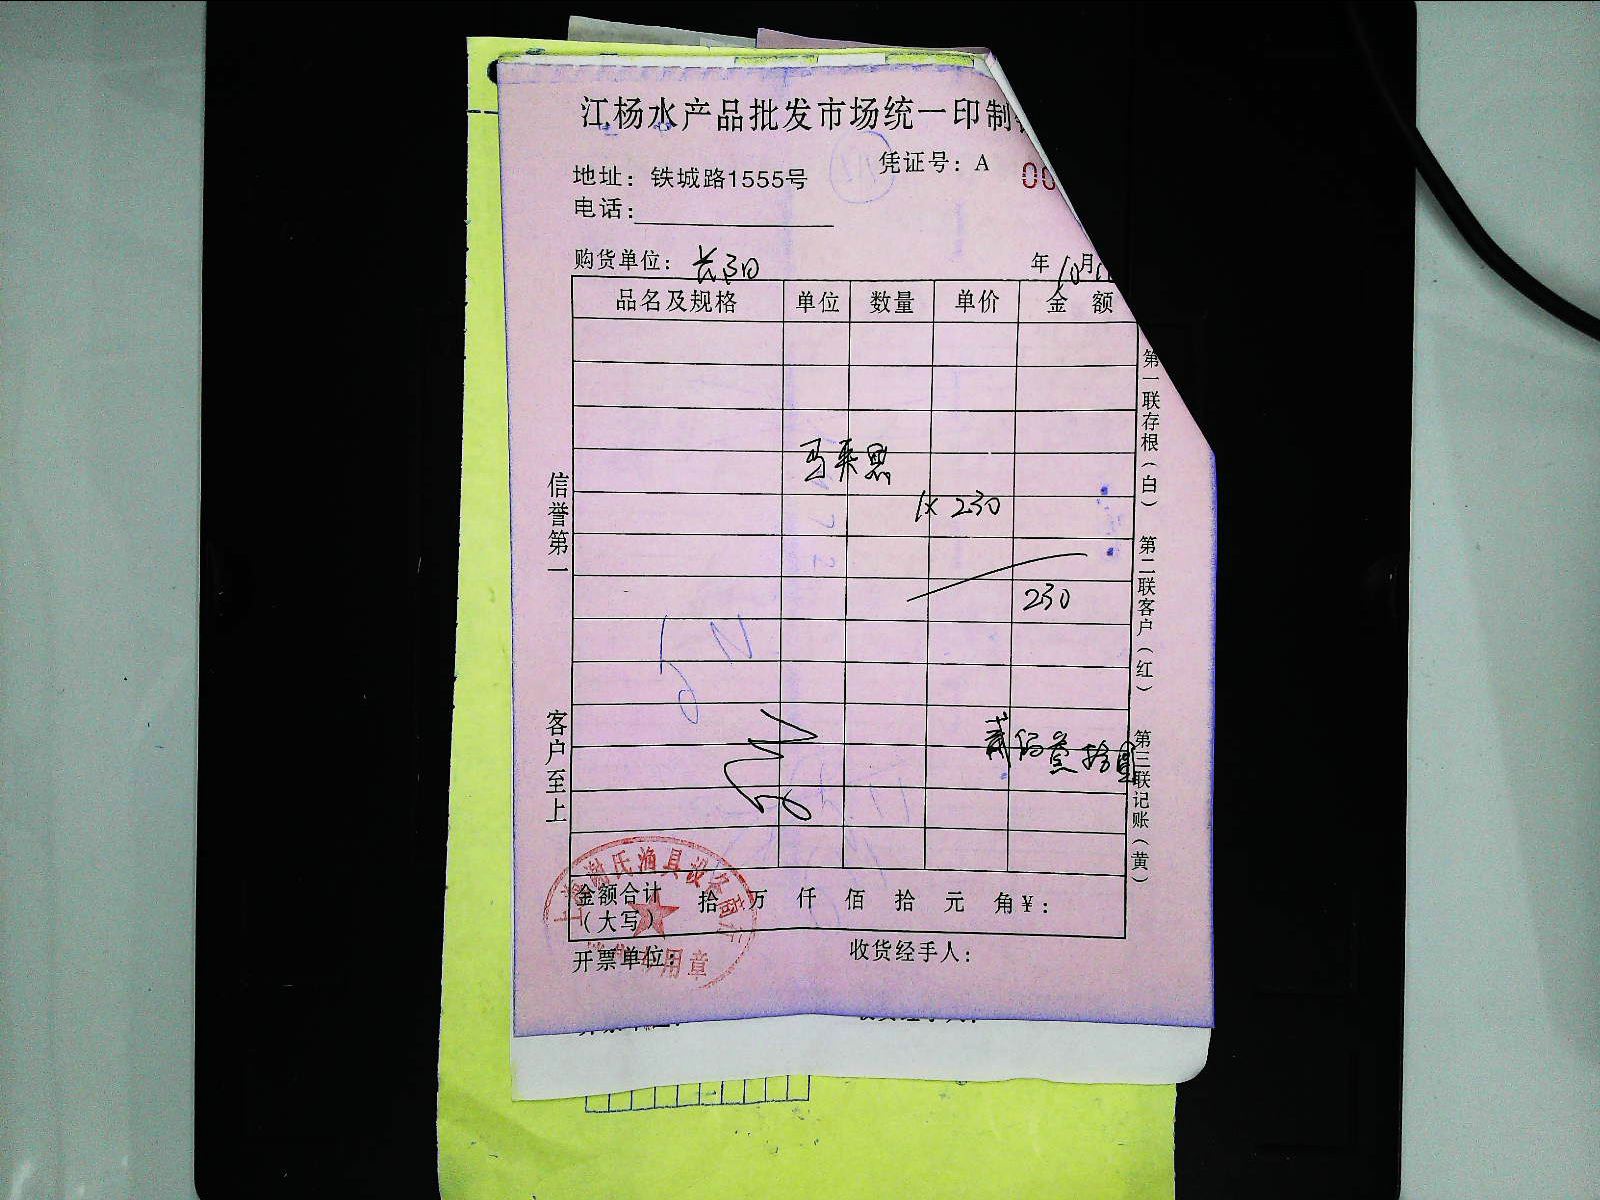 江杨水产品批发市场统一印制
凭证号：A 00
地址：铁城路1555号
电话：
购货单位：长阳
年10月
品名及规格 单位 数量 单价 金 额
1× 230
230
贰佰叁拾圆
信誉第一
客户至上
第一联存根（白）
第二联客户（红）
第三联记账（黄）
金额合计（大写） 拾 万 仟 佰 拾 元 角 ¥：
开票单位：
收货经手人：
上海谢氏渔具设备商行
用章